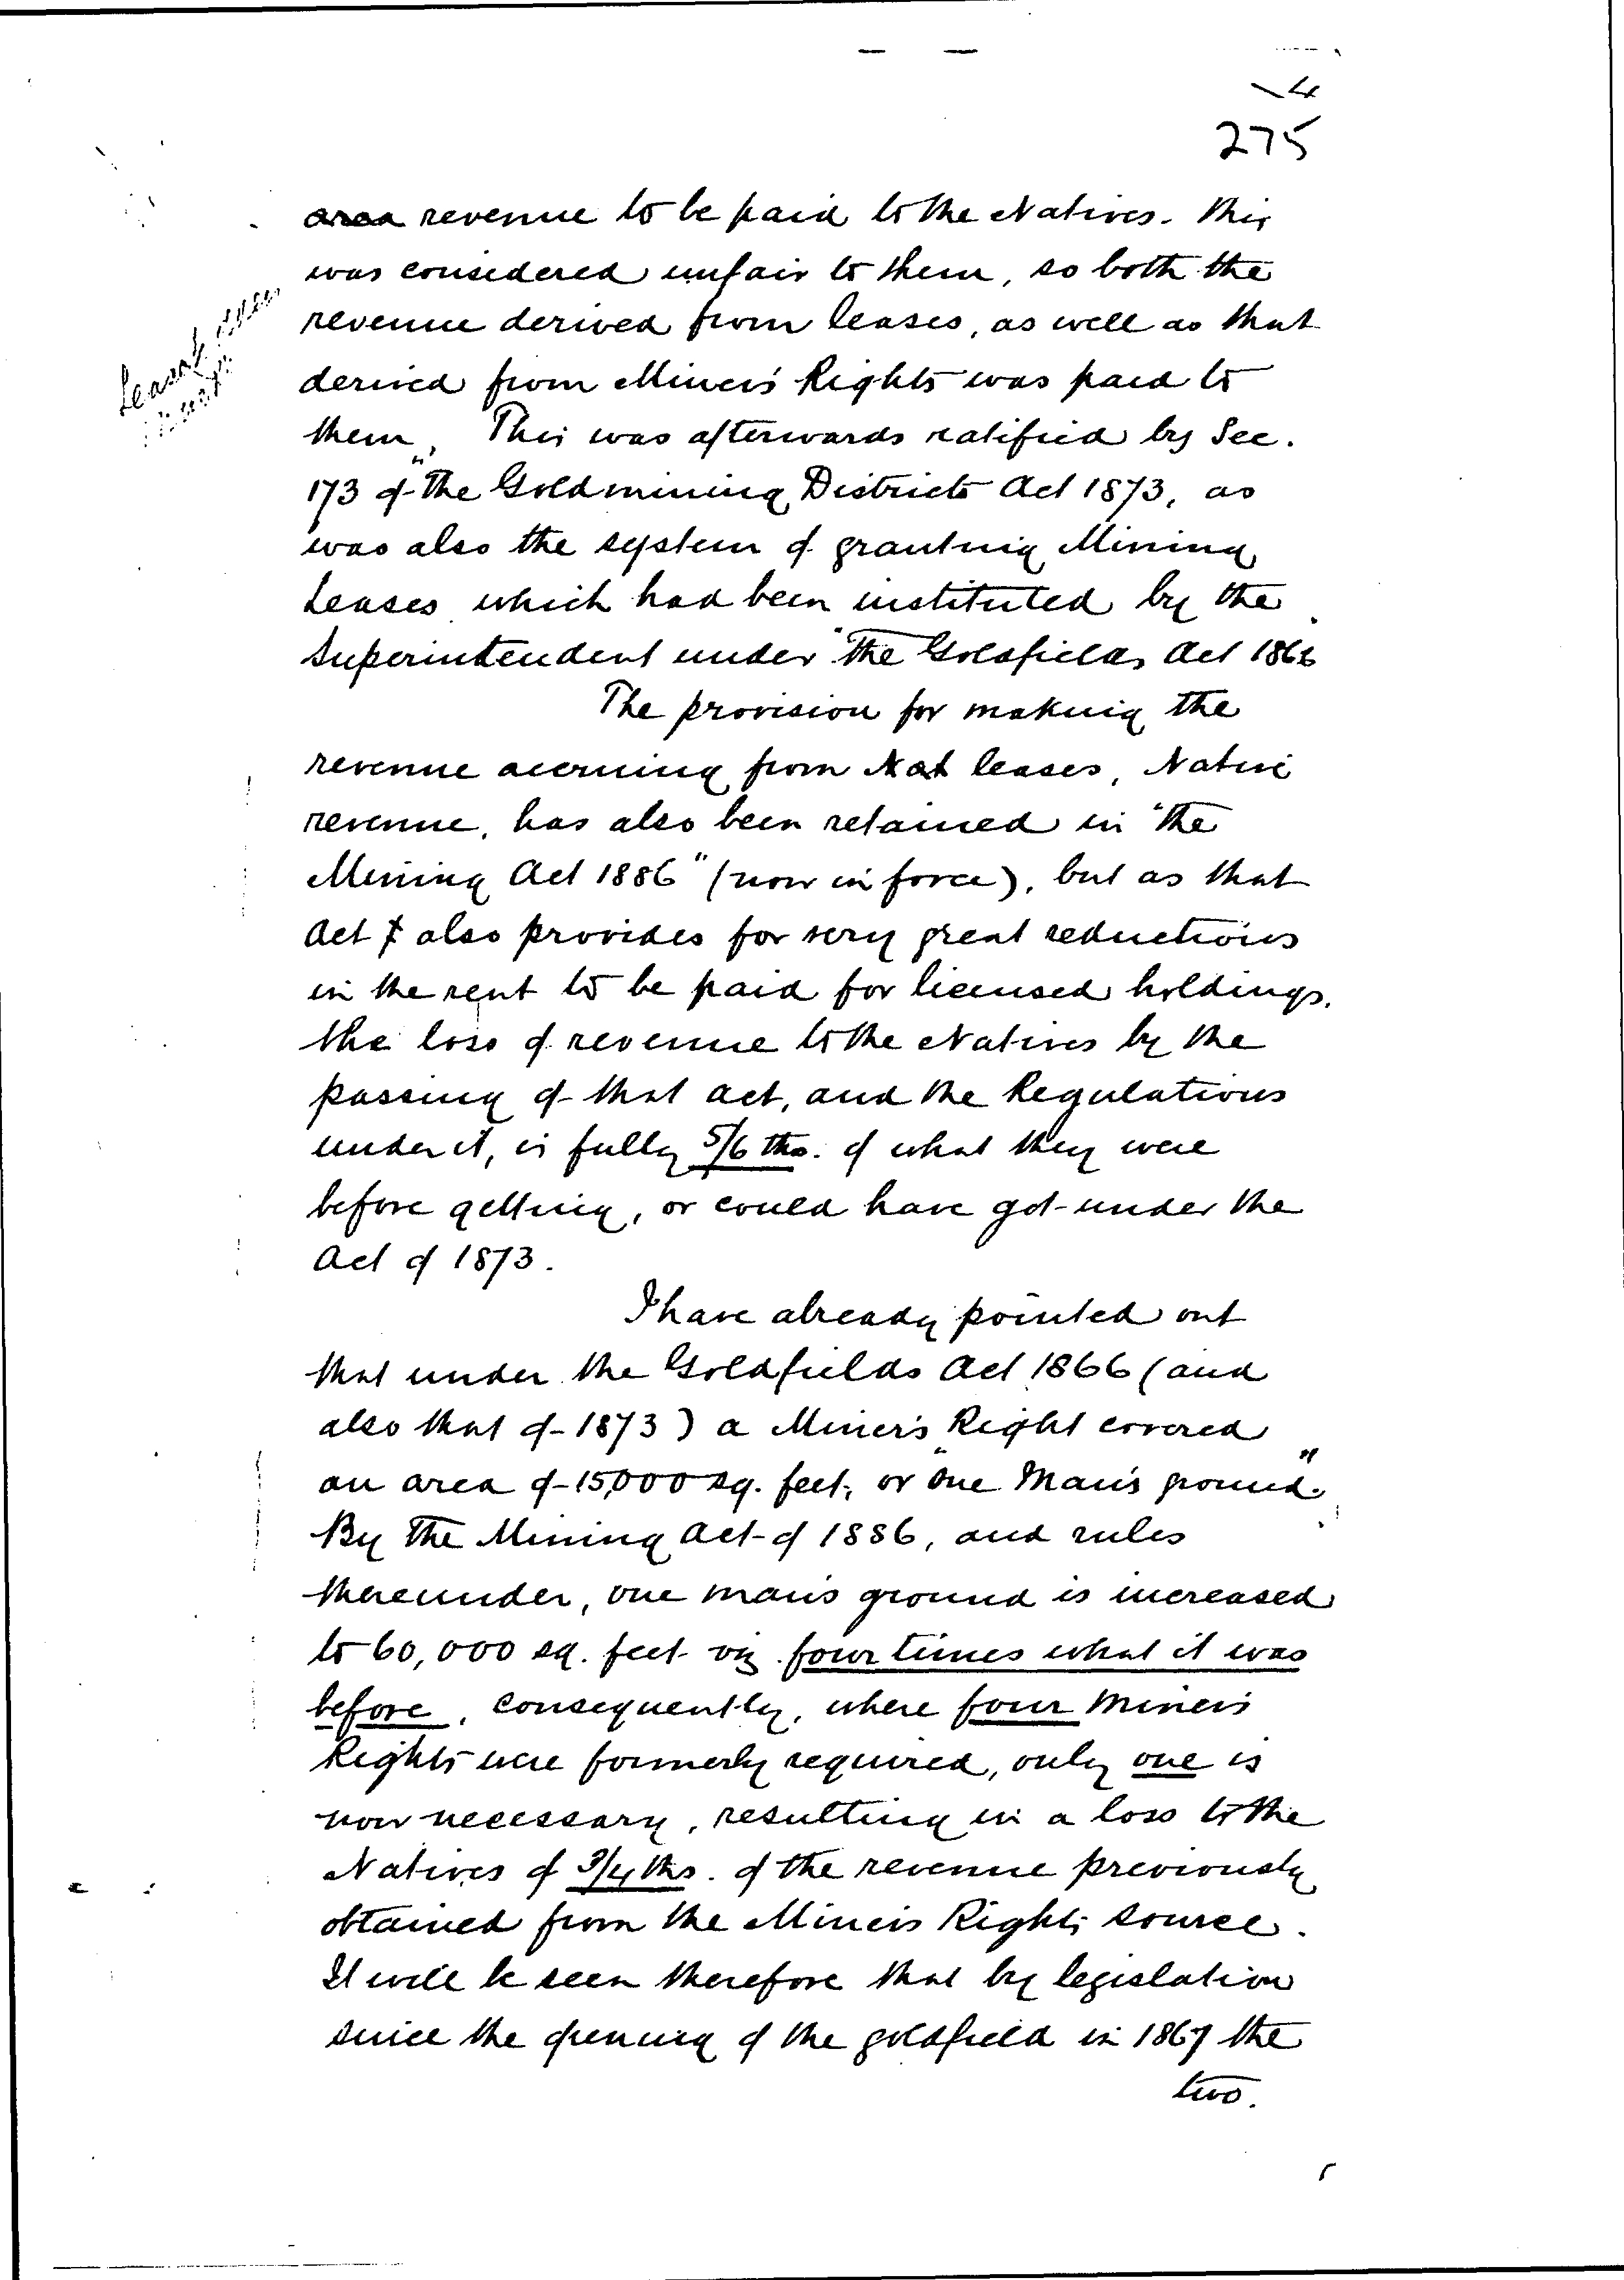 4
275
area revenue to be paid to the Natives. This
was considered unfair to them, so both the
revenue derived from leases, as well as that
derived from Miner's Rights was paid to
them. This was afterwards ratified by Sec.
173 of "The Goldmining Districts Act 1873, as
was also the system of granting Mining
Leases which had been instituted by the
Superintendent under "The Goldfields Act 1866
The provision for making the
revenue accruing from Nat leases, Native
revenue, has also been retained in "The
Mining Act 1886" (now in force), but as that
Act also provides for very great reductions
in the rent to be paid for licensed holdings,
the loss of revenue to the Natives by the
passing of that act, and the Regulations
under it, is fully 5/6 ths. of what they were
before getting, or could have got under the
Act of 1873.
I have already pointed out
that under the Goldfields Act 1866 (and
also that of 1873) a Miner's Right covered
an area of 15,000 sq. feet, or "One Man's ground."
By The Mining Act of 1886, and rules
thereunder, one man's ground is increased
to 60,000 sq. feet viz. four times what it was
before, consequently, where four Miner's
Rights were formerly required, only one is
now necessary, resulting in a loss to the
Natives of 3/4 ths. of the revenue previously
obtained from the Miners Rights source.
It will be seen therefore that by legislation
since the opening of the goldfield in 1867 the
two.